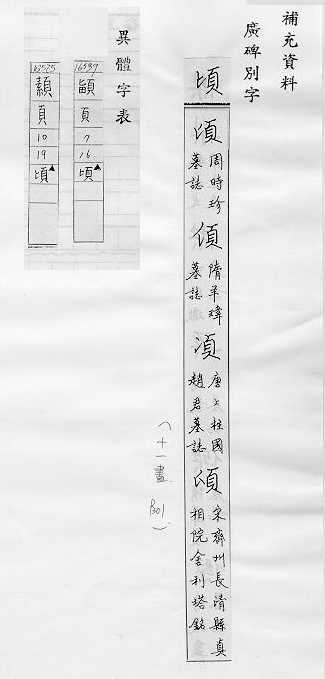 補充資料
廣碑別字
頃
頃 周時珍墓誌
傾 隋羊瑋墓誌
湏 唐上柱國趙君墓誌
頎 宋齊州長清縣真相院舍利塔銘
(十一畫 P301)
異體字表
16539
頁
7
16
頃▲
16525
頁
10
19
頃▲